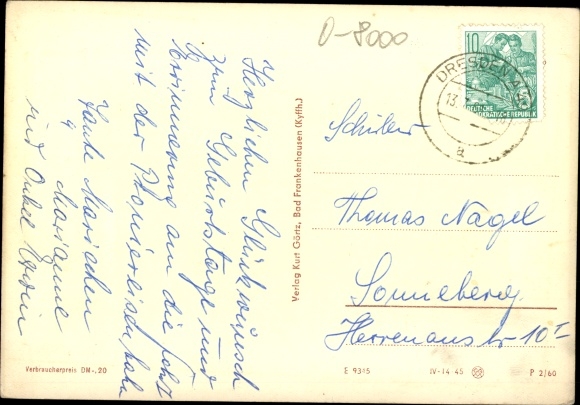 Herzlichen Glückwunsch
zum Geburtstage und
Erinnerung an die Fahrt
mit der Pioniereisenbahn
Tante Mariechen
u Marianne
und Onkel Erwin
0-8000
10
DEUTSCHE
DEMOKRATISCHE REPUBLIK
DRESDEN A
13.
a
Schüler
Thomas Nagel
Sonneberg
Herrenaustr 10 I
Verlag Kurt Görtz, Bad Frankenhausen (Kyffh.)
Verbraucherpreis DM -,20
E 9315
IV-14 45
P 2/60